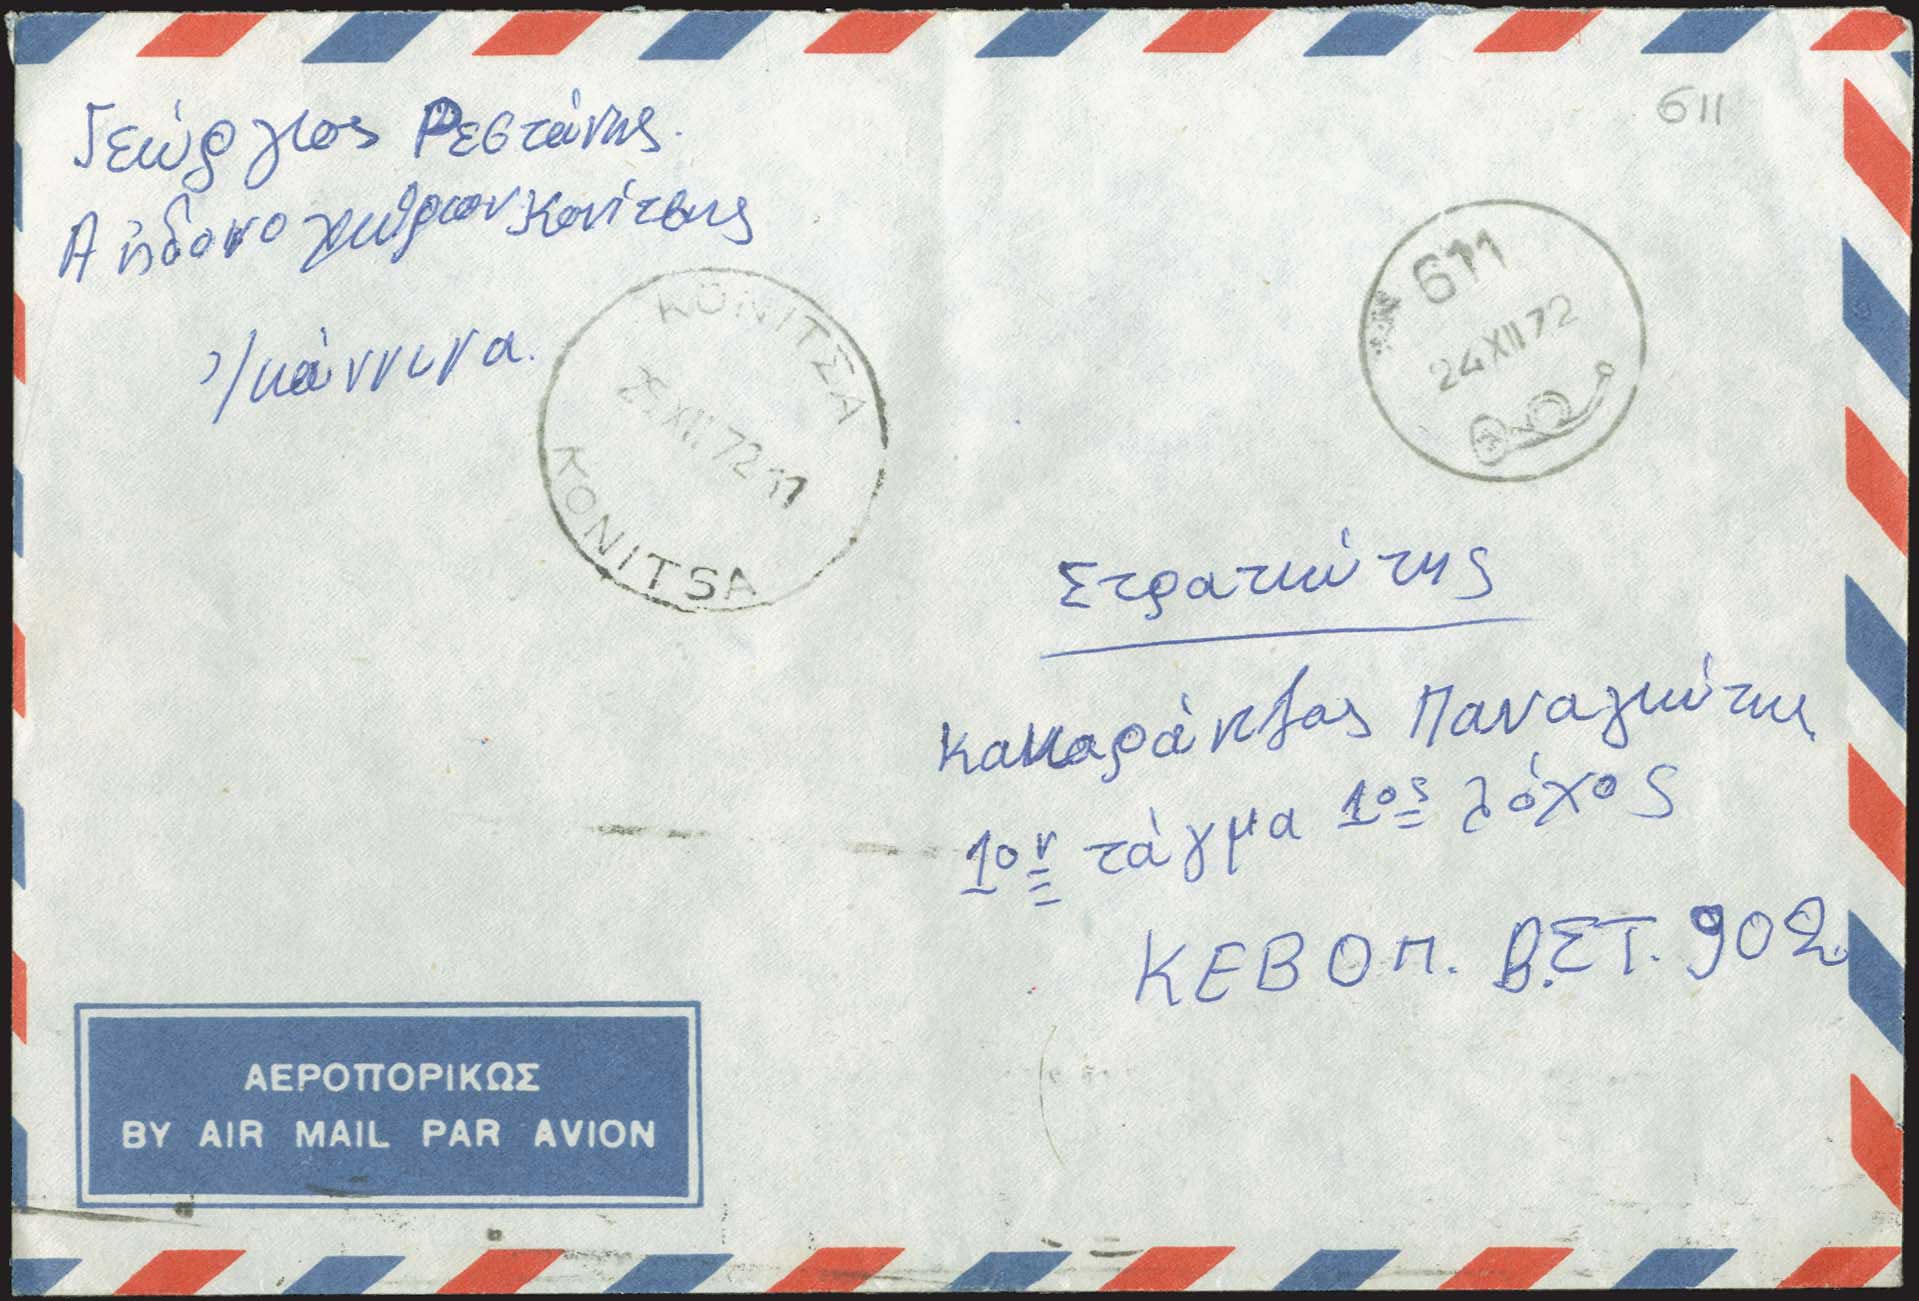 Γεώργιος Ρεστάνης.
Αηδονοχώριον Κονίτσης
Ιωάννινα.
611
611
24 XII 72
ΚΟΝΙΤΣΑ
XII 72 17
KONITSA
Στρατιώτης
Κακαράντζας Παναγιώτης
1ον τάγμα 1ος λόχος
ΚΕΒΟΠ. Β.ΣΤ. 902
ΑΕΡΟΠΟΡΙΚΩΣ
BY AIR MAIL PAR AVION